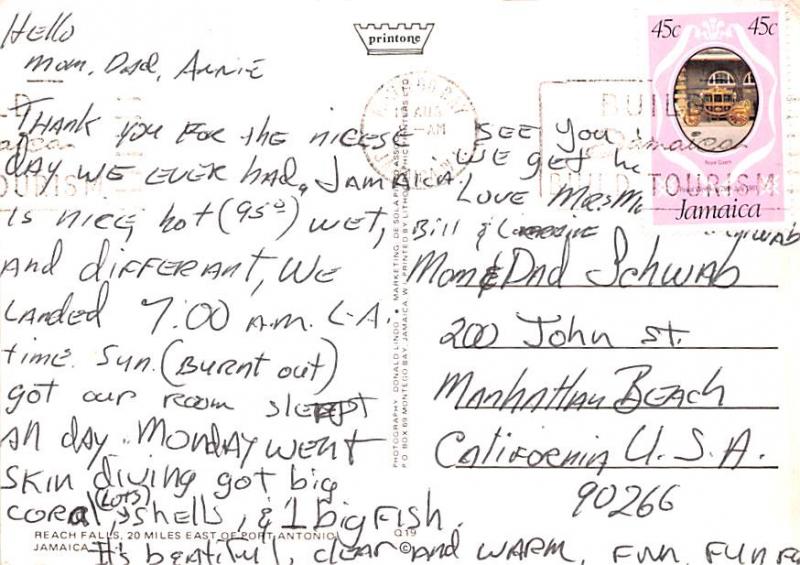 Hello
Mom, Dad, Annie
Thank you for the nicese
day we ever had, Jamaica
is nice hot (95°) wet,
and differant, we
Landed 7:00 A.M. L.A.
time. Sun. (Burnt out)
got our room slept
all day. Monday went
skin diving got big
coral, (lots) shells, & 1 big fish.
It's beatiful, clear and warm, Fun, Fun
REACH FALLS, 20 MILES EAST OF PORT ANTONIO,
JAMAICA
Q19
©
printone
PHOTOGRAPHY DONALD LINDO • MARKETING: DE SOLA
P.O. BOX 69 MONTEGO BAY, JAMAICA, W.I. PRINTED BY LITHOGRAPHIC PRINTERS LTD
See you
we get
Love Mrs
Bill &
Mom & Dad Schwab
200 John St.
Manhattan Beach
California U.S.A.
90266
45c 45c
Royal Coach
Jamaica
AUG
AM
BUILD
Jamaica
BUILD TOURISM
OURISM